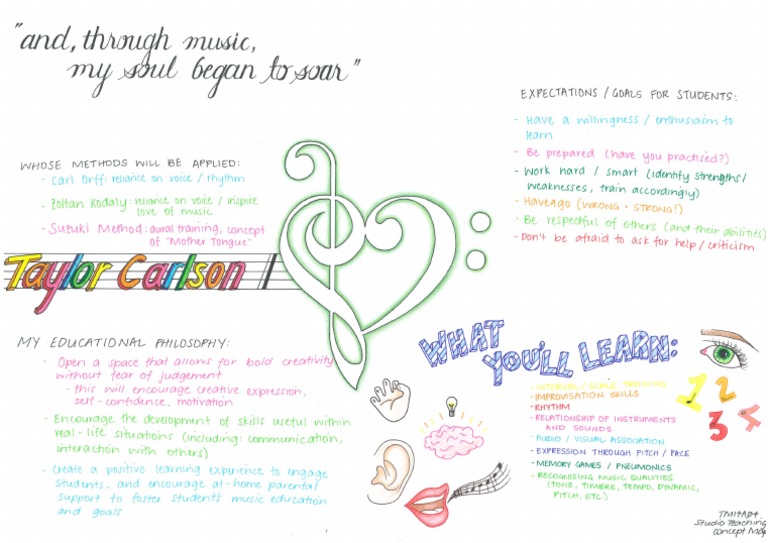 "and, through music,
my soul began to soar"
WHOSE METHODS WILL BE APPLIED:
- Carl Orff: reliance on voice / rhythm
- Zoltan Kodaly: reliance on voice / inspire
love of music
- Suzuki Method: aural training, concept
of "Mother Tongue"
Taylor Carlson
MY EDUCATIONAL PHILOSOPHY:
- Open a space that allows for bold creativity
without fear of judgement
- this will encourage creative expression,
self-confidence, motivation
- Encourage the development of skills useful within
real-life situations (including: communication,
interaction with others)
- Create a positive learning experience to engage
students, and encourage at-home parental
support to foster students music education
and goals
EXPECTATIONS / GOALS FOR STUDENTS:
- Have a willingness / enthusiasm to
learn
- Be prepared (have you practised?)
- Work hard / smart (identify strengths/
weaknesses, train accordingly)
- Have a go (WRONG + STRONG!)
- Be respectful of others (and their abilities)
- Don't be afraid to ask for help / criticism
WHAT
YOU'LL LEARN:
- INTERVAL / SCALE TRAINING
- IMPROVISATION SKILLS
- RHYTHM
- RELATIONSHIP OF INSTRUMENTS
AND SOUNDS
- AUDIO / VISUAL ASSOCIATION
- EXPRESSION THROUGH PITCH / PACE
- MEMORY GAMES / PNEUMONICS
- RECOGNISING MUSIC QUALITIES
(TONE, TIMBRE, TEMPO, DYNAMIC,
PITCH, ETC)
1 2
3 4
Studio Teaching
Concept Map